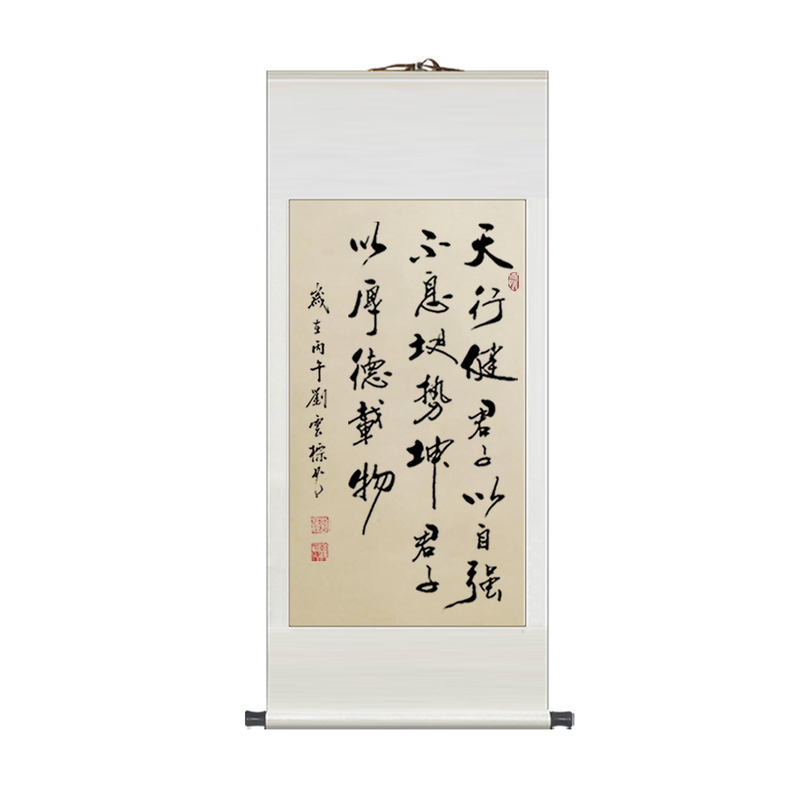 天行健君子以自强
不息地势坤君子
以厚德载物
歲在丙午劉雲棕书